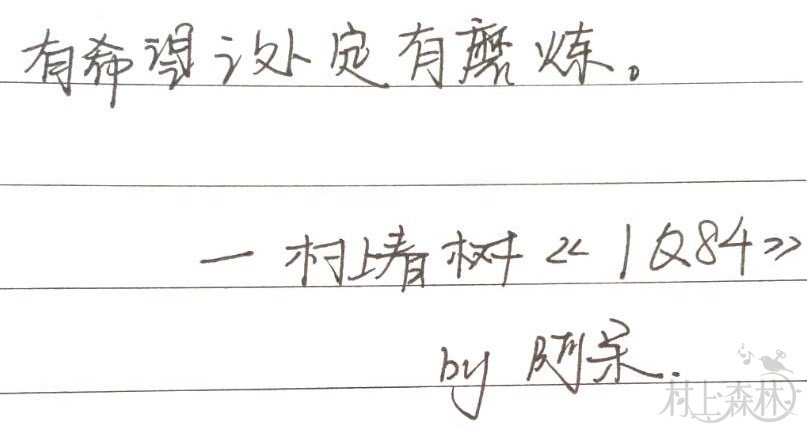 有希望之处定有磨炼。
— 村上春树《1Q84》
by 阿呆.
村上森林